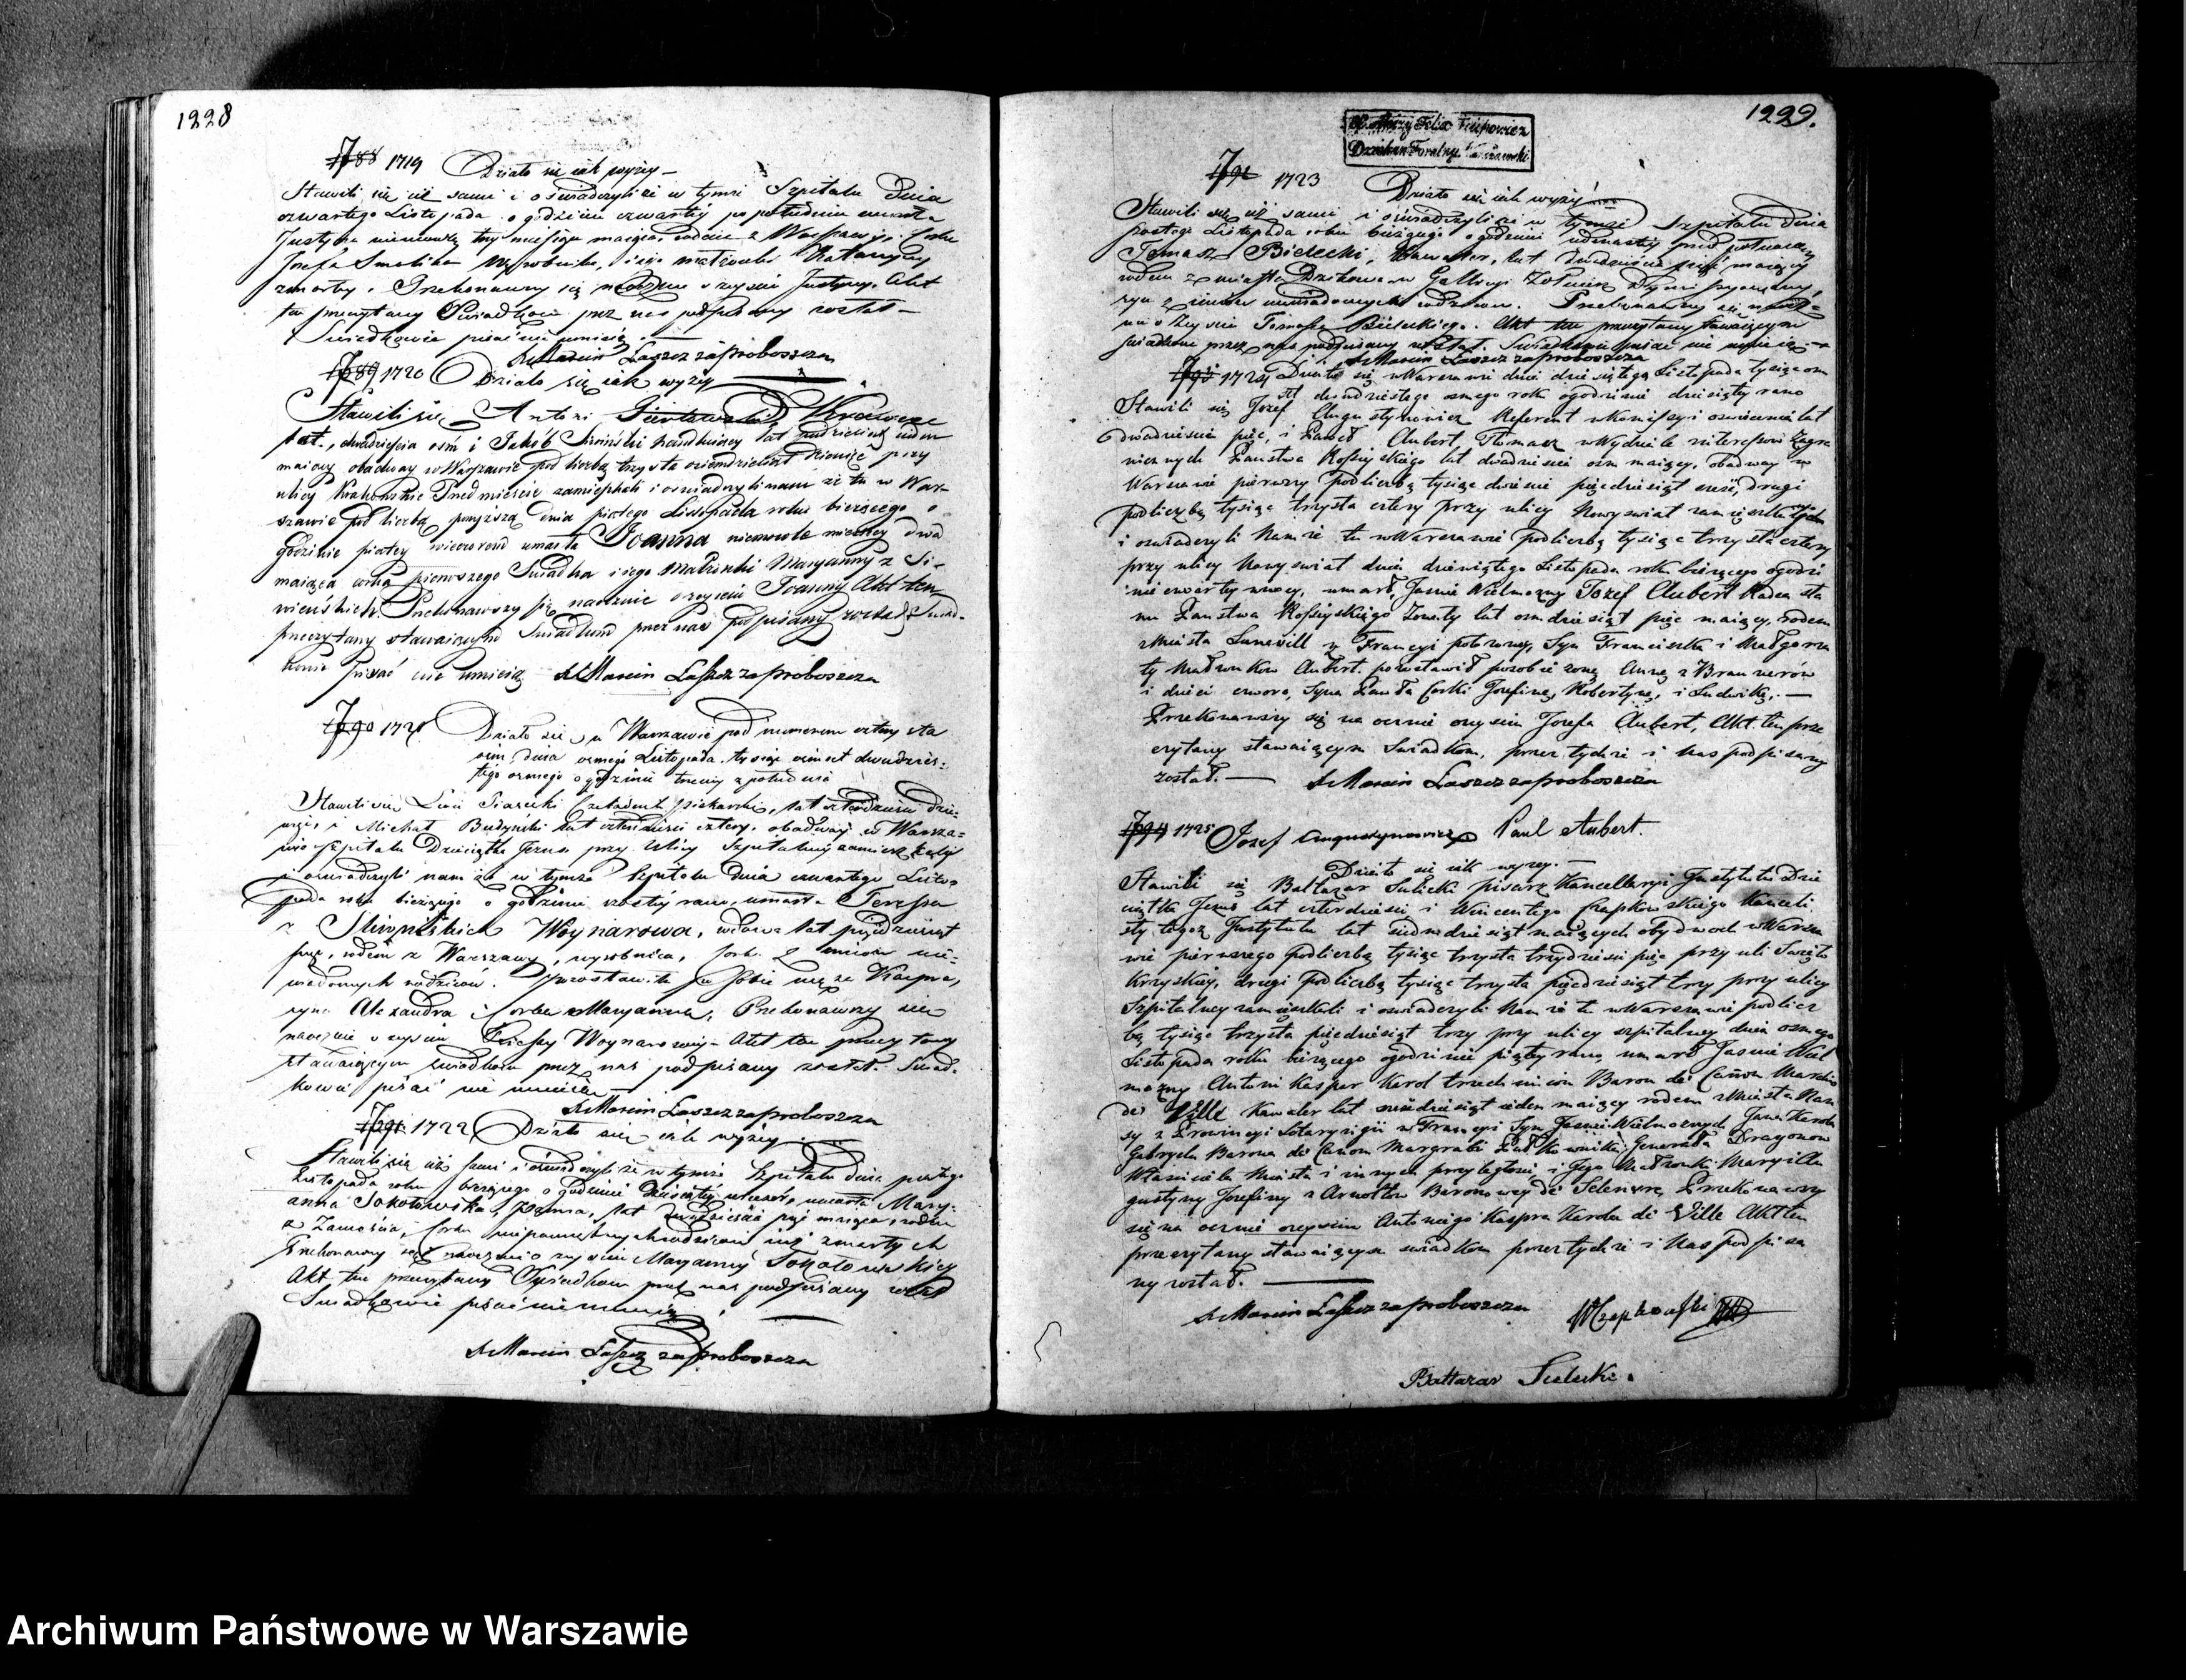 1228
1719 Działo się iak wyżey –
Stawili się ciż sami i oświadczyli iż w tymże Szpitalu Dnia
czwartego Listopada o godzinie czwartey po południu umarła
Justyna niemowlę trzy miesiące maiąca, rodem z Warszawy, Córka
Jozefa Wyrobnika, i iego małżonki Katarzyny
zmarłey. Przekonawszy się naocznie o zeyściu Justyny, Akt
ten przeczytany Świadkom prez nas podpisany został –
Świadkowie pisać nie umieią
X Marcin Łaszcz za proboszcza
1720 Działo się iak wyżey
Stawili się Antoni
lat dwadzieścia ośm i Jakób Simiński lat pięćdziesiąt ieden
maiący obadway w Warszawie pod liczbą trzysta ośmdziesiąt przy
ulicy Krakowskie Przedmieście zamieszkali i oświadczyli nam że tu w War-
szawie pod liczbą powyższą dnia piątego Listopada roku bieżącego o
godzinie piątey wieczorem umarła Joanna niemowle miesięcy dwa
maiąca córka pierwszego Świadka i iego Małżonki Maryanny z Si-
mińskich. Przekonawszy się naocznie o zeyściu Joanny Akt ten
przeczytany stawaiącym Świadkom przez nas podpisany został Świad-
kowie pisać nie umieią X Marcin Łaszcz za proboszcza
1721 Działo się w Warszawie pod numerem cztery sta
ośm, dnia osmego Listopada tysiąc ośmset dwudzies-
tego osmego o godzinie trzeciey z południa
Stawili się Piasecki Czeladnik Piekarski, lat czterdzieści dzie-
więć, i Michał Budyński lat czterdzieści cztery, obadway w Warsza-
wie Szpitalu Dzieciątka Jezus przy Ulicy Szpitalney zamieszkali
i oświadczyli nam że w tymże Szpitalu Dnia czwartego Listo-
pada roku bieżącego o godzinie szóstey rano, umarła Teressa
z Slimińskich Woynarowa, wdowa lat pięćdziesiąt
pięć, rodem z Warszawy, wyrobnica, Córka z imion nie-
wiadomych rodziców. Pozostawiła po sobie męża Kacpra,
syna Alexandra i Córkę Maryannę. Przekonawszy się
naocznie o zeyściu Teressy Woynarowey Akt ten przeczytany
stawaiącym świadkom przez nas podpisany został. Świad-
kowie pisać nie umieią
X Marcin Łaszcz za proboszcza
1722 Działo się iak wyżey
Stawili się ciż sami i oświadczyli że w tymże Szpitalu dnia piątego
Listopada roku bieżącego o godzinie dziesiątey wieczór umarła Mary-
anna Sokołowska, panna, lat dwadzieścia pięć maiąca, rodem
z Zamościa, Córka niepamiętnych rodziców iuż zmarłych
Przekonawszy się naocznie o zeyściu Maryanny Sokołowskiey
Akt ten przeczytany Świadkom przez nas podpisany został
Świadkowie pisać nie umieią
X Marcin Łaszcz za proboszcza
1229.
Dziekan Foralny Warszawski
1723 Działo się iak wyżey
Stawili się ciż sami i oświadczyli iż w tymże Szpitalu dnia
szóstego Listopada roku bieżącego o godzinie iedenastey przed południem
Tomasz Bielecki, Kawaler, lat dwadzieścia pięć maiący
rodem z miasta Dzikowa w Gallicyi Żołnierz
syn z imion niewiadomych rodziców. Przekonawszy się naocz-
nie o Zeyściu Tomasza Bieleckiego. Akt ten przeczytany stawaiącym
świadkom przez nas podpisany został. Świadkowie pisać nie umieią –
X Marcin Łaszcz za proboszcza
1724 Działo się w Warszawie dnia dziesiątego Listopada tysiąc osm
set dwudziestego osmego roku o godzinie dziesiątey rano
Stawili się Jozef Augustynowicz Referent w Komissyi oświecenia lat
dwadzieścia pięć, i Paweł Aubert Tłomacz w Wydziale interessów Zagra
nicznych Państwa Rossyiskiego lat dwadzieścia osm maiący, obadway w
Warszawie pierwszy pod liczbą tysiąc dwieście pięćdziesiąt sześć, drugi
pod liczbą tysiąc trzysta cztery przy ulicy Nowy świat zamieszkali
i oświadczyli Nam że tu w Warszawie pod liczbą tysiąc trzysta cztery
przy ulicy Nowy świat dnia dziewiątego Listopada roku bieżącego o godzi
nie czwartey w nocy, umarł Jaśnie Wielmożny Jozef Aubert Radca sta
nu Państwa Rossyiskiego Żonaty lat osmdziesiąt pięć maiący, rodem
z Miasta Lunevill w Francyi położonej, Syn Franciszka i Małgorza
ty Małżonków Aubert. pozostawił po sobie żonę Annę z Brannerów
i dzieci czworo, Syna Pawła Córki Jozefinę, Robertynę, i Ludwikę. —
Przekonawszy się na ocznie o zeyściu Jozefa Aubert, Akt ten prze
czytany stawaiącym Świadkom, przez tychże i Nas podpisany
został. — X Marcin Łaszcz za proboszcza
1725 Jozef Augustynowicz Paul Aubert.
Działo się iak wyżey. —
Stawili się Baltazar Sulicki pisarz Kancellaryi Jnstytutu Dzie
ciątka Jezus lat czterdzieści i Wincentego Czapkowskiego Kancelli
sty tegoż Jnstytutu lat siedmdziesiąt maiących obydwóch w Warsza
wie pierwszego pod liczbą tysiąc trzysta trzydzieści pięć przy uli Święto
krzyskiey, drugi pod liczbą tysiąc trzysta pięćdziesiąt trzy przy ulicy
Szpitalney zamieszkali i oświadczyli Nam że tu w Warszawie pod licz
bą tysiąc trzysta pięćdziesiąt trzy przy ulicy szpitalney dnia osmego
Listopada roku bieżącego o godzinie piątey rano umarł Jaśnie Wiel
możny Antoni Kasper Karol trzech imion Baron de Cańon Marchio
de Ville Kawaler lat sześćdziesiąt ieden maiący rodem z Miasta Ram
sy z Prowincyi Lotaryngii w Francyi Syn Jaśnie Wielmożnych Jana Karola
Gabryela Barona de Cańon Margrabi Pułkownika Generała Dragonow
Właściciela Miasta i innych przyległości i Jego Małżonki Maryi Au
gustyny Jozefiny z Arnoltów Baronowey de Przekonawszy
się na ocznie o zeyściu Antoniego Kaspra Karola de Ville Akt ten
przeczytany stawaiącym swiadkom przez tychże i Nas podpisa
ny został. —
X Marcin Łaszcz za proboszcza WCzapkowski
Baltazar Sulicki.
Archiwum Państwowe w Warszawie